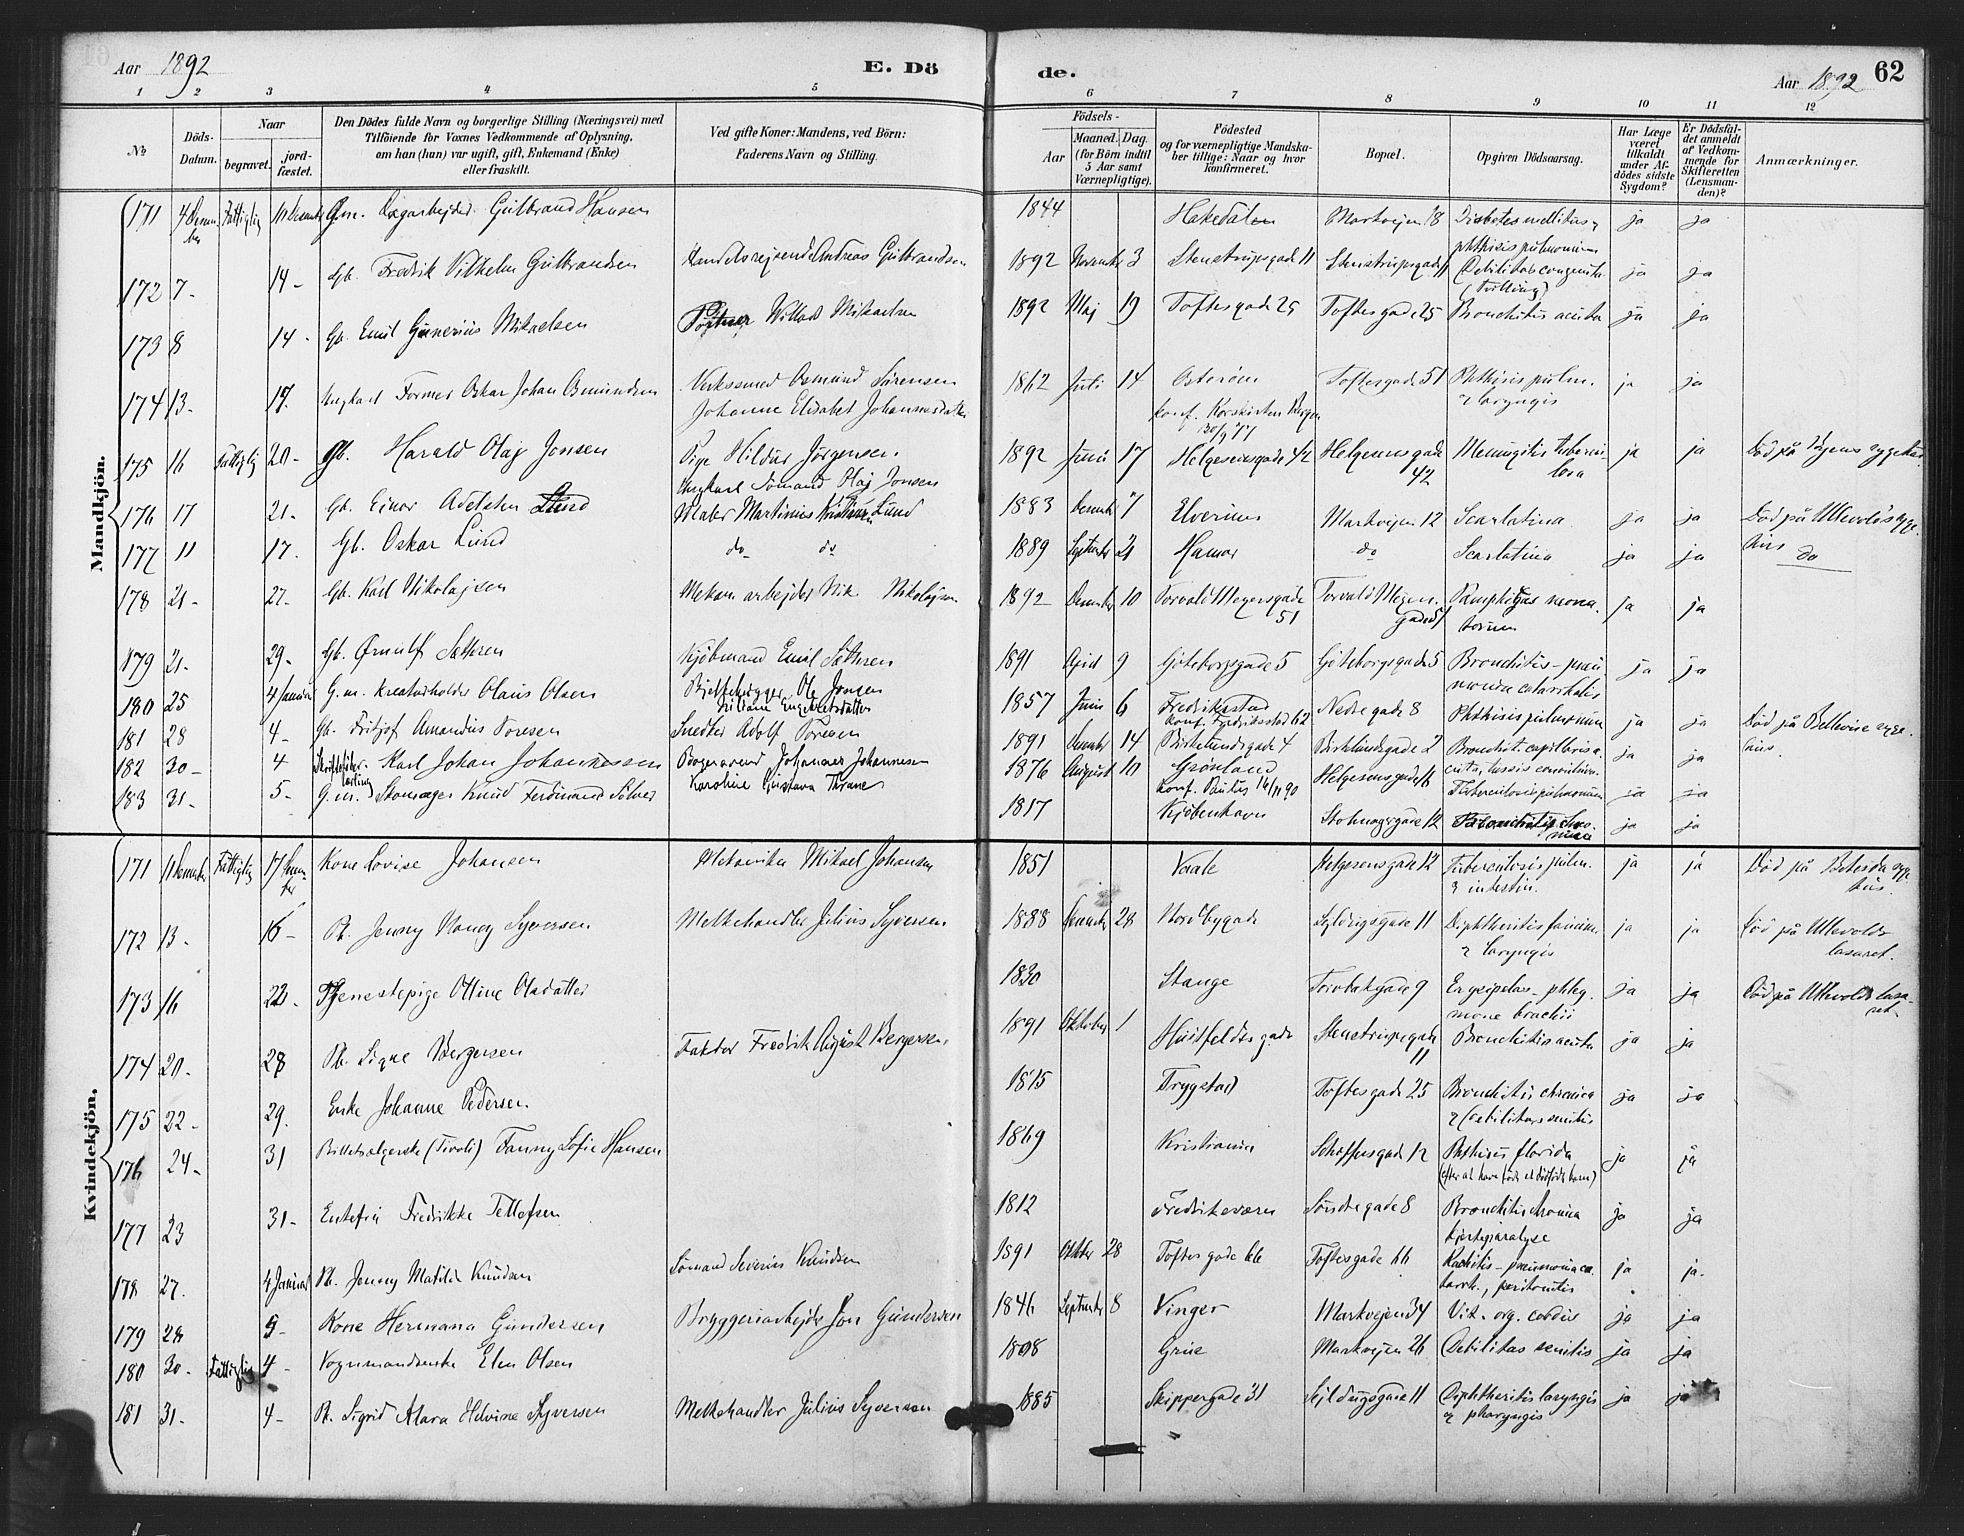 Aar 1892 E. Dö de. Aar 1892 62
1 2 3 4 5 6 7 8 9 10 11 12
№ Döds-Datum. Naar begravet. jord-fæstet. Den Dödes fulde Navn og borgerlige Stilling (Næringsvei) med Tilföiende for Voxnes Vedkommende af Oplysning, om han (hun) var ugift, gift, Enkemand (Enke) eller fraskilt. Ved gifte Koner: Mandens, ved Börn: Faderens Navn og Stilling. Födsels- Aar Maaned. Dag. (for Börn indtil 5 Aar samt Værnepligtige). Födested og for værnepligtige Mandskaber tillige: Naar og hvor konfirmeret. Bopæl. Opgiven Dödsaarsag. Har Læge været tilkaldt under Afdödes sidste Sygdom? Er Dödsfaldet anmeldt af Vedkommende for Skifteretten (Lensmanden)? Anmærkninger.
Mandkjön.
171 4 Fattiglig Gm. Dagarbejder Gulbrand Hansen 1844 Hakedalen Markvejen 18 Diabetes mellitus, phthisis pulmonum ja ja
172 7- 14- Gb. Fredrik Vilhelm Gulbrandsen Handelsrejsende Andreas Gulbrandsen 1892 3 Stenstrupsgade 11 Stenstrupsgade 11 Debilitas congenita (Tvilling) ja ja
173 8 14- Gb. Emil Gunerius Mikaelsen Willads Mikaelsen 1892 Maj 19 Toftesgade 25 Toftesgade 25 Bronchitis acuta ja ja
174 13- 17. Ungkarl Former Oskar Johan Osmundsen Verkssmed Osmund Sörensen Johanne Elisabet Johannesdatter 1862 Juli 14 Osterøen konf. Korskirken Bergen 30/9 77 Toftesgade 51 Phthisis pulm. & laryngis ja ja
175 16 Fattiglig 20- Gb. Harald Olaj Jonsen Pige Hildur Jørgensen. Ungkarl Sømand Olaj Jonsen 1892 Juni 17 Helgesensgade 42 Helgesensgade 42 Meningitis tubercu- losa ja ja Død på
176 17 21- Gb. Einar Adelsten Lund Maler Martinius Kristian Lund 1883 7 Elverum Markvejen 12 Scarlatina ja ja Død på Ullevolds syge- hus
177 11 17. Gb. Oskar Lund do do 1889 21 Hamar do Scarlatina ja ja do
178 21- 27- Gb. Karl Nikolajsen Mekan. arbejder Nik Nikolajsen 1892 10 Torvald Meyersgade 51 Torvald Meyers gade 51 Pemphigus neona- torum ja ja
179 21- 29- Gb. Ørnulf Sæthren Kjøbmand Emil Sæthren 1891 April 9 Göteborgsgade 5 Göteborgsgade 5 Bronchitis-pneu monia catarrhalis ja ja
180 25 4 Januar G.m. Kreaturholder Olaus Olsen Ole Jonsen 1857 Juni 6 Fredrikstad konf. Fredriksstad 62 Nedregade 8 Phthisis pulmonum ja ja Død på Bellevue syge- hus.
181 28 4- Gb. Fritjof Amandus Toresen Snedker Adolf Toresen 1891 14 Birkelundsgade 4 Birkelundsgade 2 Bronchit. capillaris a- cuta, tussis convulsiva. ja ja
182 30- 4 Karl Johan Johannessen Johannes Johannesen Karoline Gustava Thrane 1876 August 10 Grønland konf. Paulus 14/11 90 Helgesensgade 16 Tuberculosis pulmonum ja ja
183 31- 5- G.m. Knud Ferdinand 1817 Kjøbenhavn 12 ja ja
Kvindekjön.
171 11 Fattiglig 17 Kone Lovise Johansen Mikael Johansen 1851 Vaale Helgesensgade 12 Tuberculosis pulm. & intestin. ja ja Død på Betesda syge hus.
172 13- 16- Pb. Jenny Nancy Syversen Melkehandler Julius Syversen 1888 28 Nordbygade 11 Diphtheritis faucium & laryngis ja ja Død på Ullevolds lasaret.
173 16 22- Tjenestepige Ottine Olsdatter 1830 Stange 9 Erysipelas-phleg- mone brachii ja ja Død på Ullevolds lasa- ret.
174 20- 28 Pb. Signe Bergersen Faktor Fredrik August Bergersen. 1891 Oktober 1 Huitfeldts gade Stenstrupsgade 11 Bronchitis acuta ja ja
175 22- 29. Enke Johanne Pedersen. 1815 Trygstad Toftesgade 25 Bronchitis chronica & (debilitas senilis ja ja
176 24- 31 Billetsælgerske (Tivoli) Fanny Sofie Hansen 1869 Kristiania 12 Phthisis florida (efter at have født et dødfødt barn) ja ja
177 23 31- Enkefru Fredrikke Tellefsen 1812 Fredriksværn Søndregade 8 Bronchitis chronica hjerteparalyse ja ja
178 27. 4 Januar Pb. Jenny Matilde Knudsen Sømand Severin Knudsen 1891 Oktber 28 Toftes gade 66 Toftesgade 66 Rachitis-pneumonia ca- tarrh., peritonitis ja ja-
179 28 5- Kone Hermana Gundersen Bryggeriarbejder Jon Gundersen 1846 8 Vinger Markvejen 34 Vit. org. cordis ja ja
180 30- Fattiglig 4- Vognmandsenke Elen Olsen 1808 Grue Markvejen 26 Debilitas senilis ja ja
181 31- 4- Pb. Sigrid Klara Helvine Syversen Melkehandler Julius Syversen 1885 Skippergade 31 11 Diphtheritis laryngis & pharyngis ja ja